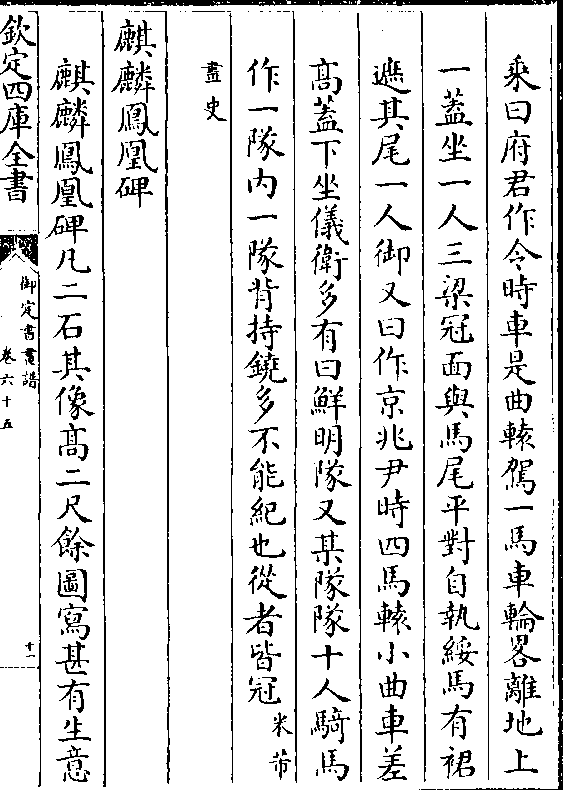 乘曰府君作令時車是曲轅駕一馬車輪畧離地上
一蓋坐一人三梁冠面與馬尾平對自執綏馬有裙
遮其尾一人御又曰作京兆尹時四馬轅小曲車差
高蓋下坐儀衛多有曰鮮明隊又某隊隊十人騎馬
作一隊内一隊背持鐃多不能紀也從者皆冠米芾
畫史
麒麟鳳凰碑
麒麟鳳凰碑凡二石其像高二尺餘圖寫甚有生意
欽定四庫全書
御定書畫譜
卷六十五
十一